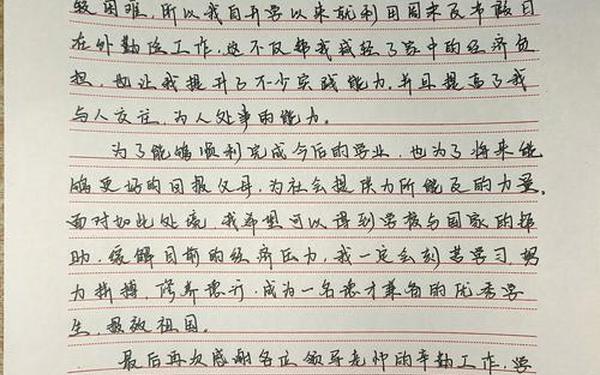 较困难，所以我自开学以来就利用周末及节假日
在外勤俭工作，这不仅帮我减轻了家中的经济负
担，也让我提升了不少实践能力，并且提高了我
与人交往、为人处事的能力。
为了能够顺利完成今后的学业，也为了将来能
够更好的回报父母，为社会提供力所能及的力量。
面对如此处境，我希望可以得到学校与国家的帮
助，缓解目前的经济压力，我一定会刻苦学习，努
力拼搏，修养德行，成为一名德才兼备的优秀学
生，报效祖国。
最后再次感谢各位领导老师的辛勤工作，学